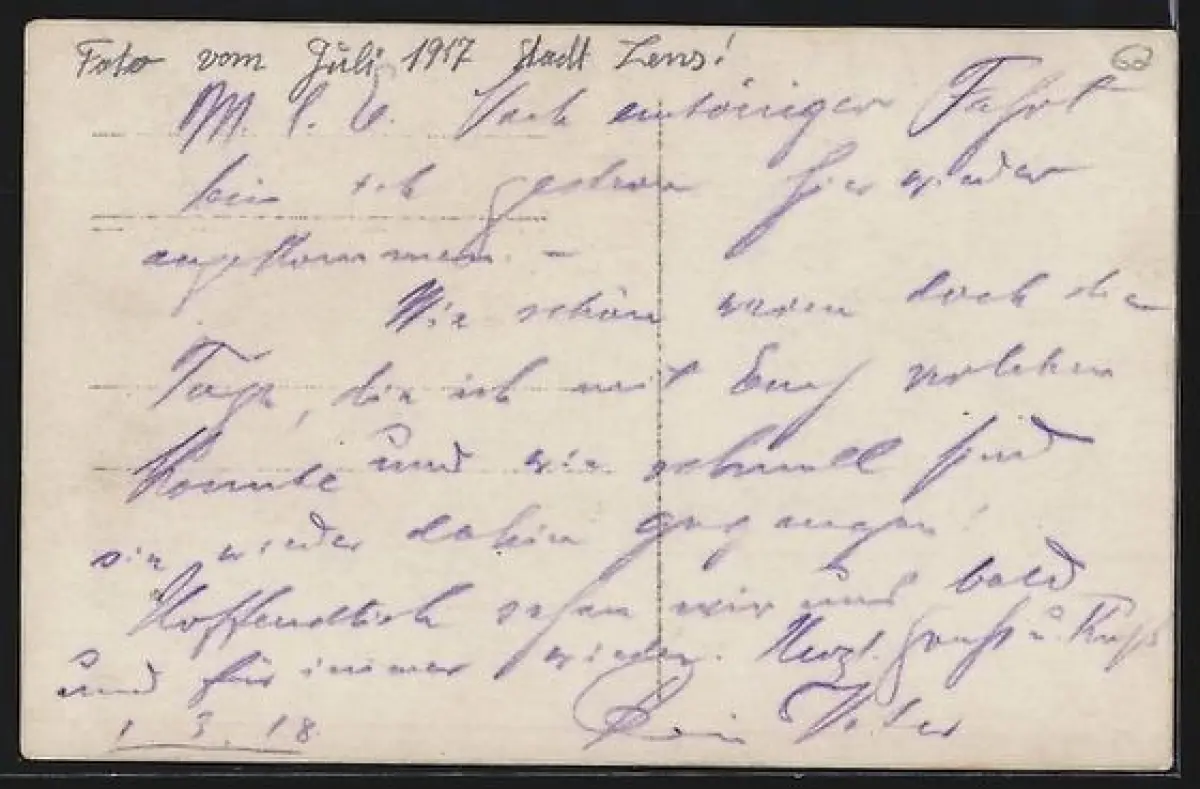 Foto vom Juli 1917 Stadt Lens!
62
M. l. E. Nach eintöniger Fahrt
bin ich gestern hier wieder
angekommen. –
Wie schön waren doch die
Tage, die ich mit Euch
konnte und wie schnell sind
sie wieder dahin gegangen!
Hoffentlich sehen wir uns bald
und für immer wieder. Herzl. Gruß u. Kuß
1. 3. 18. Dein Vater